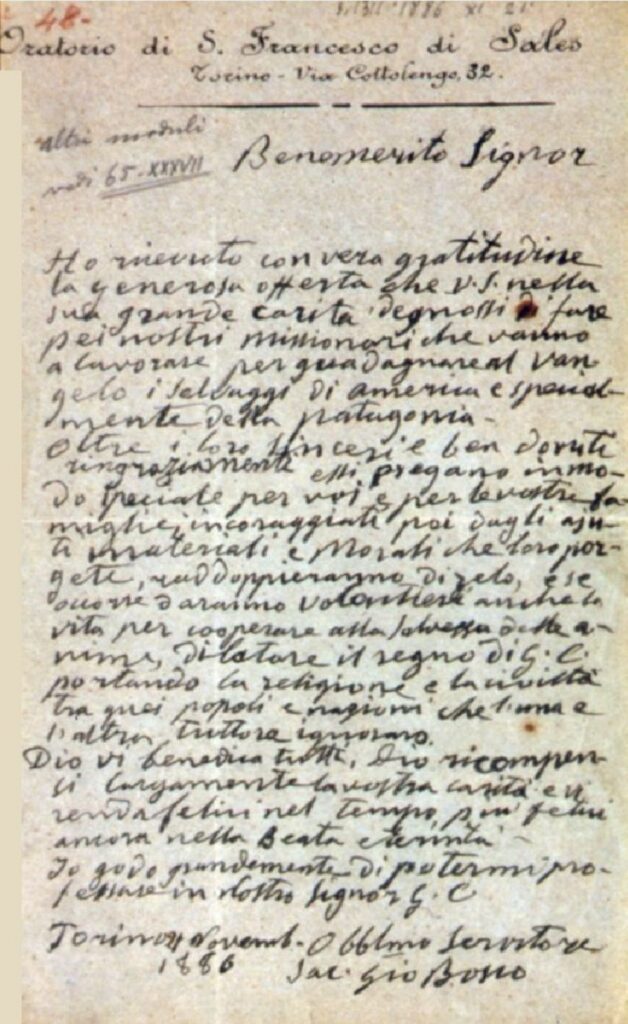 48-
1886 XI 21
Oratorio di S. Francesco di Sales
Torino - Via Cottolengo, 32.
altri moduli
vedi 65-XXXVII
Benemerito Signor
Ho ricevuto con vera gratitudine
la generosa offerta che V.S. nella
sua grande carità degnossi di fare
pei nostri missionari che vanno
a lavorare per guadagnare al Van
gelo i selvaggi di america e special-
mente della patagonia-
Oltre i loro sinceri e ben dovuti
ringraziamente essi pregano in mo-
do speciale per voi e per le vostre fa-
miglie, incoraggiati poi dagli aju-
ti materiali e Morali che loro por-
gete, raddoppieranno di zelo, e se
occorre daranno volentieri anche la
vita per cooperare alla salvezza delle a-
nime, dilatare il regno di G. C.
portando la religione e la civiltà
tra quei popoli e nazioni che l'una e
l'altra tuttora ignorano.
Dio vi benedica tutti, Dio ricompen-
si largamente la vostra carità e vi
renda felici nel tempo, più felici
ancora nella Beata eternità -
Io godo grandemente di potermi pro-
fessare in Nostro Signor G. C
Torino Novemb- Obblmo Servitore
1886 Sac. Gio Bosco